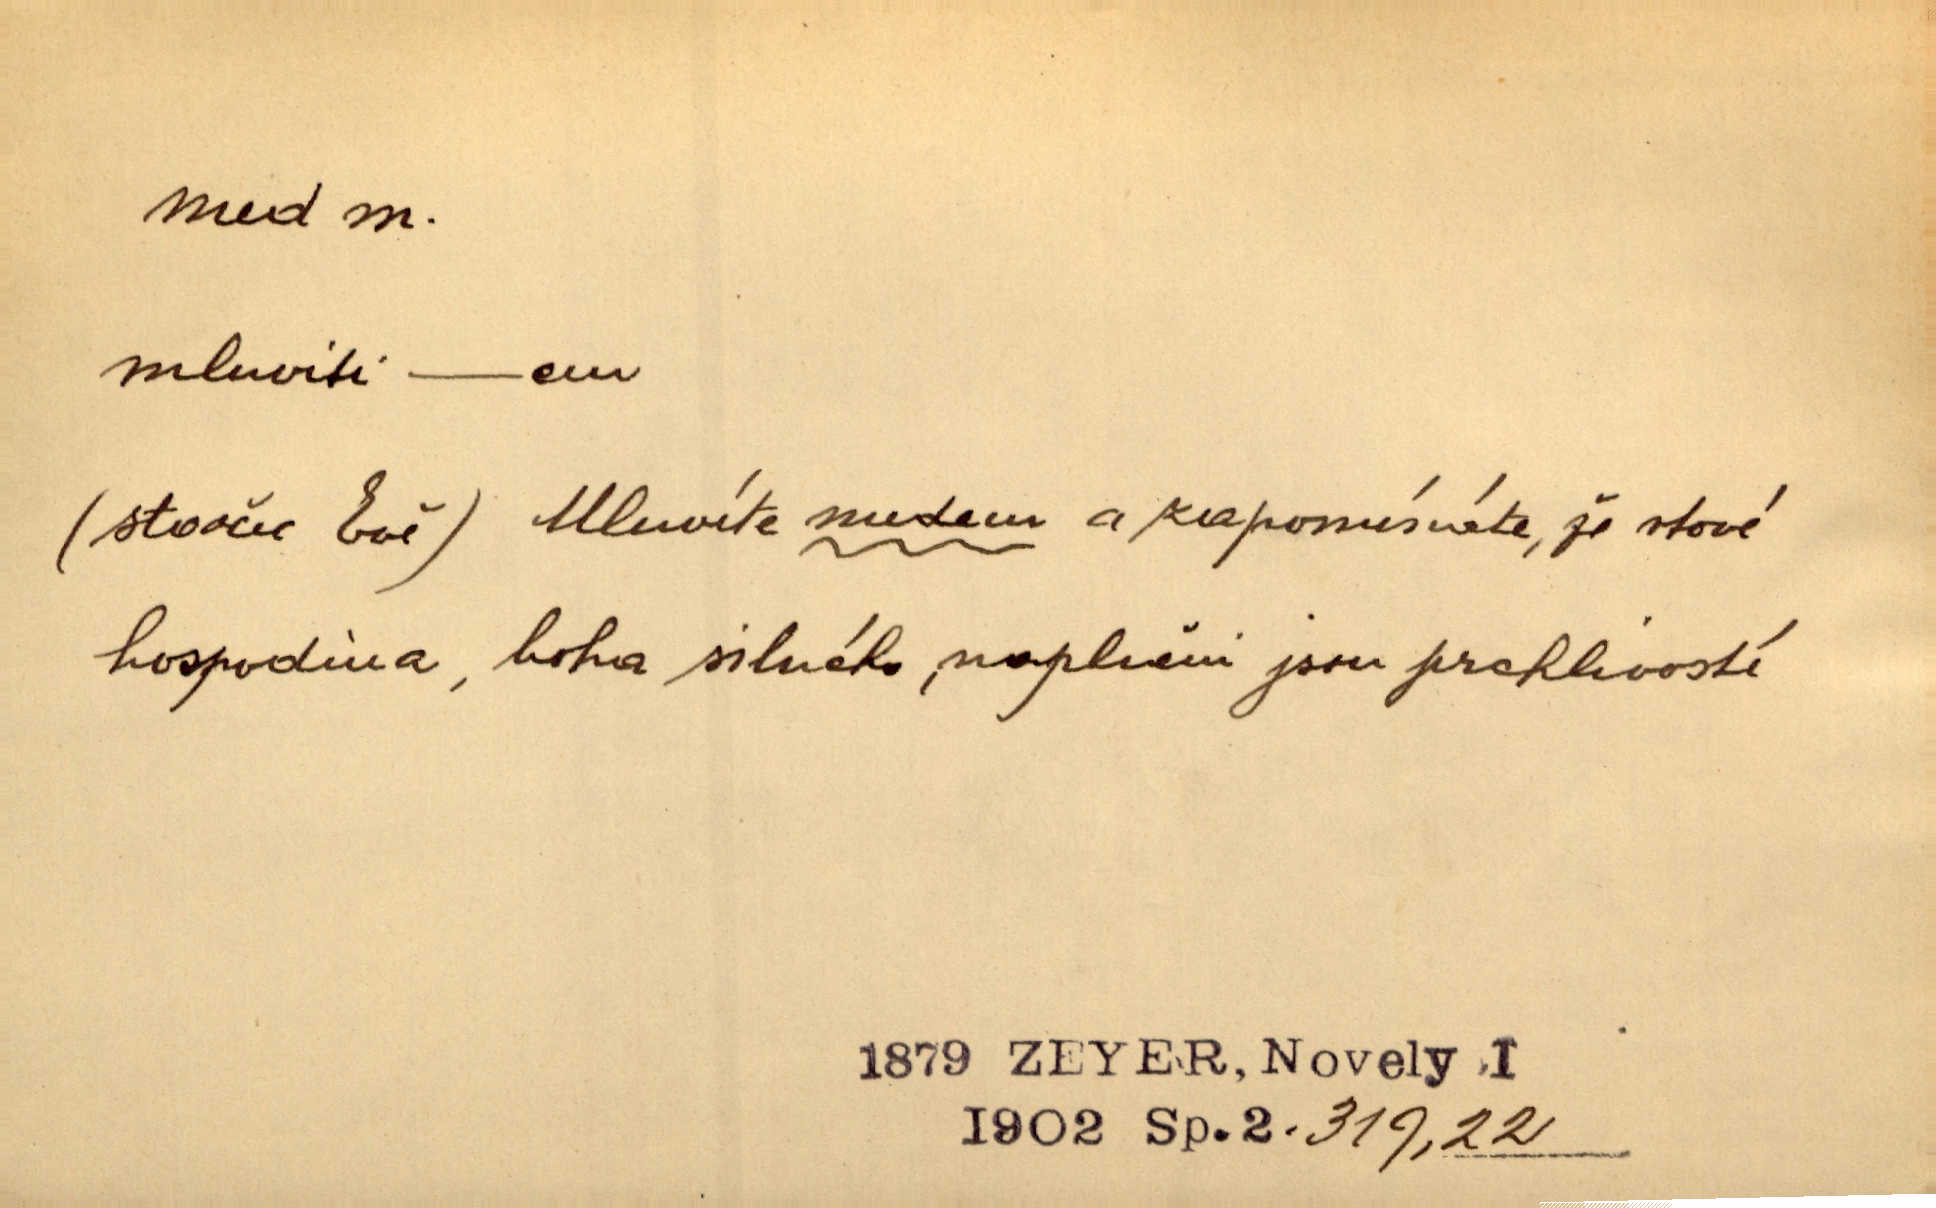 med m.
mluviti —em
(stařec Evě) Mluvíte medem a zapomínáte, že rtové
hospodina, boha silného, naplněni jsou prchlivostí
1879 ZEYER, Novely I
1902 Sp.2. 319,22